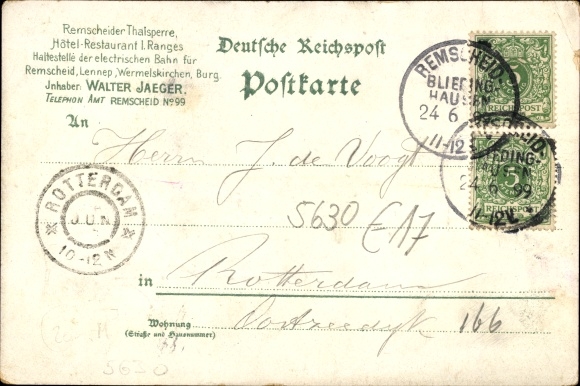 Remscheider Thalsperre,
Hôtel-Restaurant I. Ranges
Haltestelle der electrischen Bahn für
Remscheid, Lennep, Wermelskirchen, Burg.
Jnhaber: WALTER JAEGER,
TELEPHON AMT REMSCHEID No 99
Deutsche Reichspost
Postkarte
REMSCHEID
BLIEDING-
HAUSEN
24 6
11-12V
REICHSPOST
An
Herrn J. de Voogt
REMSCHEID
BLIEDING-
HAUSEN
24 6 99
11-12V.
5
REICHSPOST
ROTTERDAM
JUN
10-12V
5630 E17
in Rotterdam
Wohnung
(Straße und Hausnummer)
166
5630